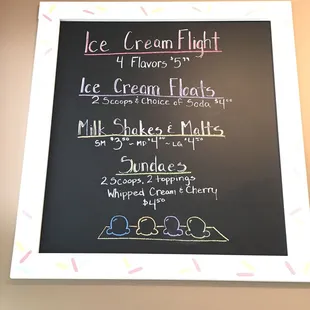 Ice Cream Flight
4 Flavors $5⁰⁰
Ice Cream Floats
2 Scoops & Choice of Soda $4⁰⁰
Milk Shakes & Malts
SM $3⁵⁰ ~ MD $4⁰⁰ ~ LG $4⁵⁰
Sundaes
2 Scoops, 2 toppings
Whipped Cream & Cherry
$4⁵⁰